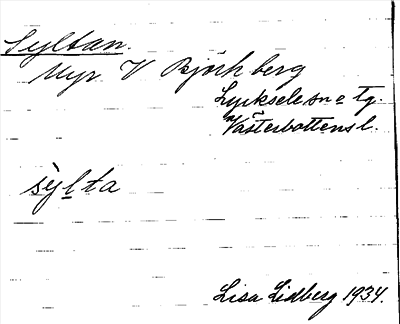 Syltan.
Myr V Björkberg
Lycksele sn o tg.
Västerbottens l.
sylta
Lisa Lidberg 1934.